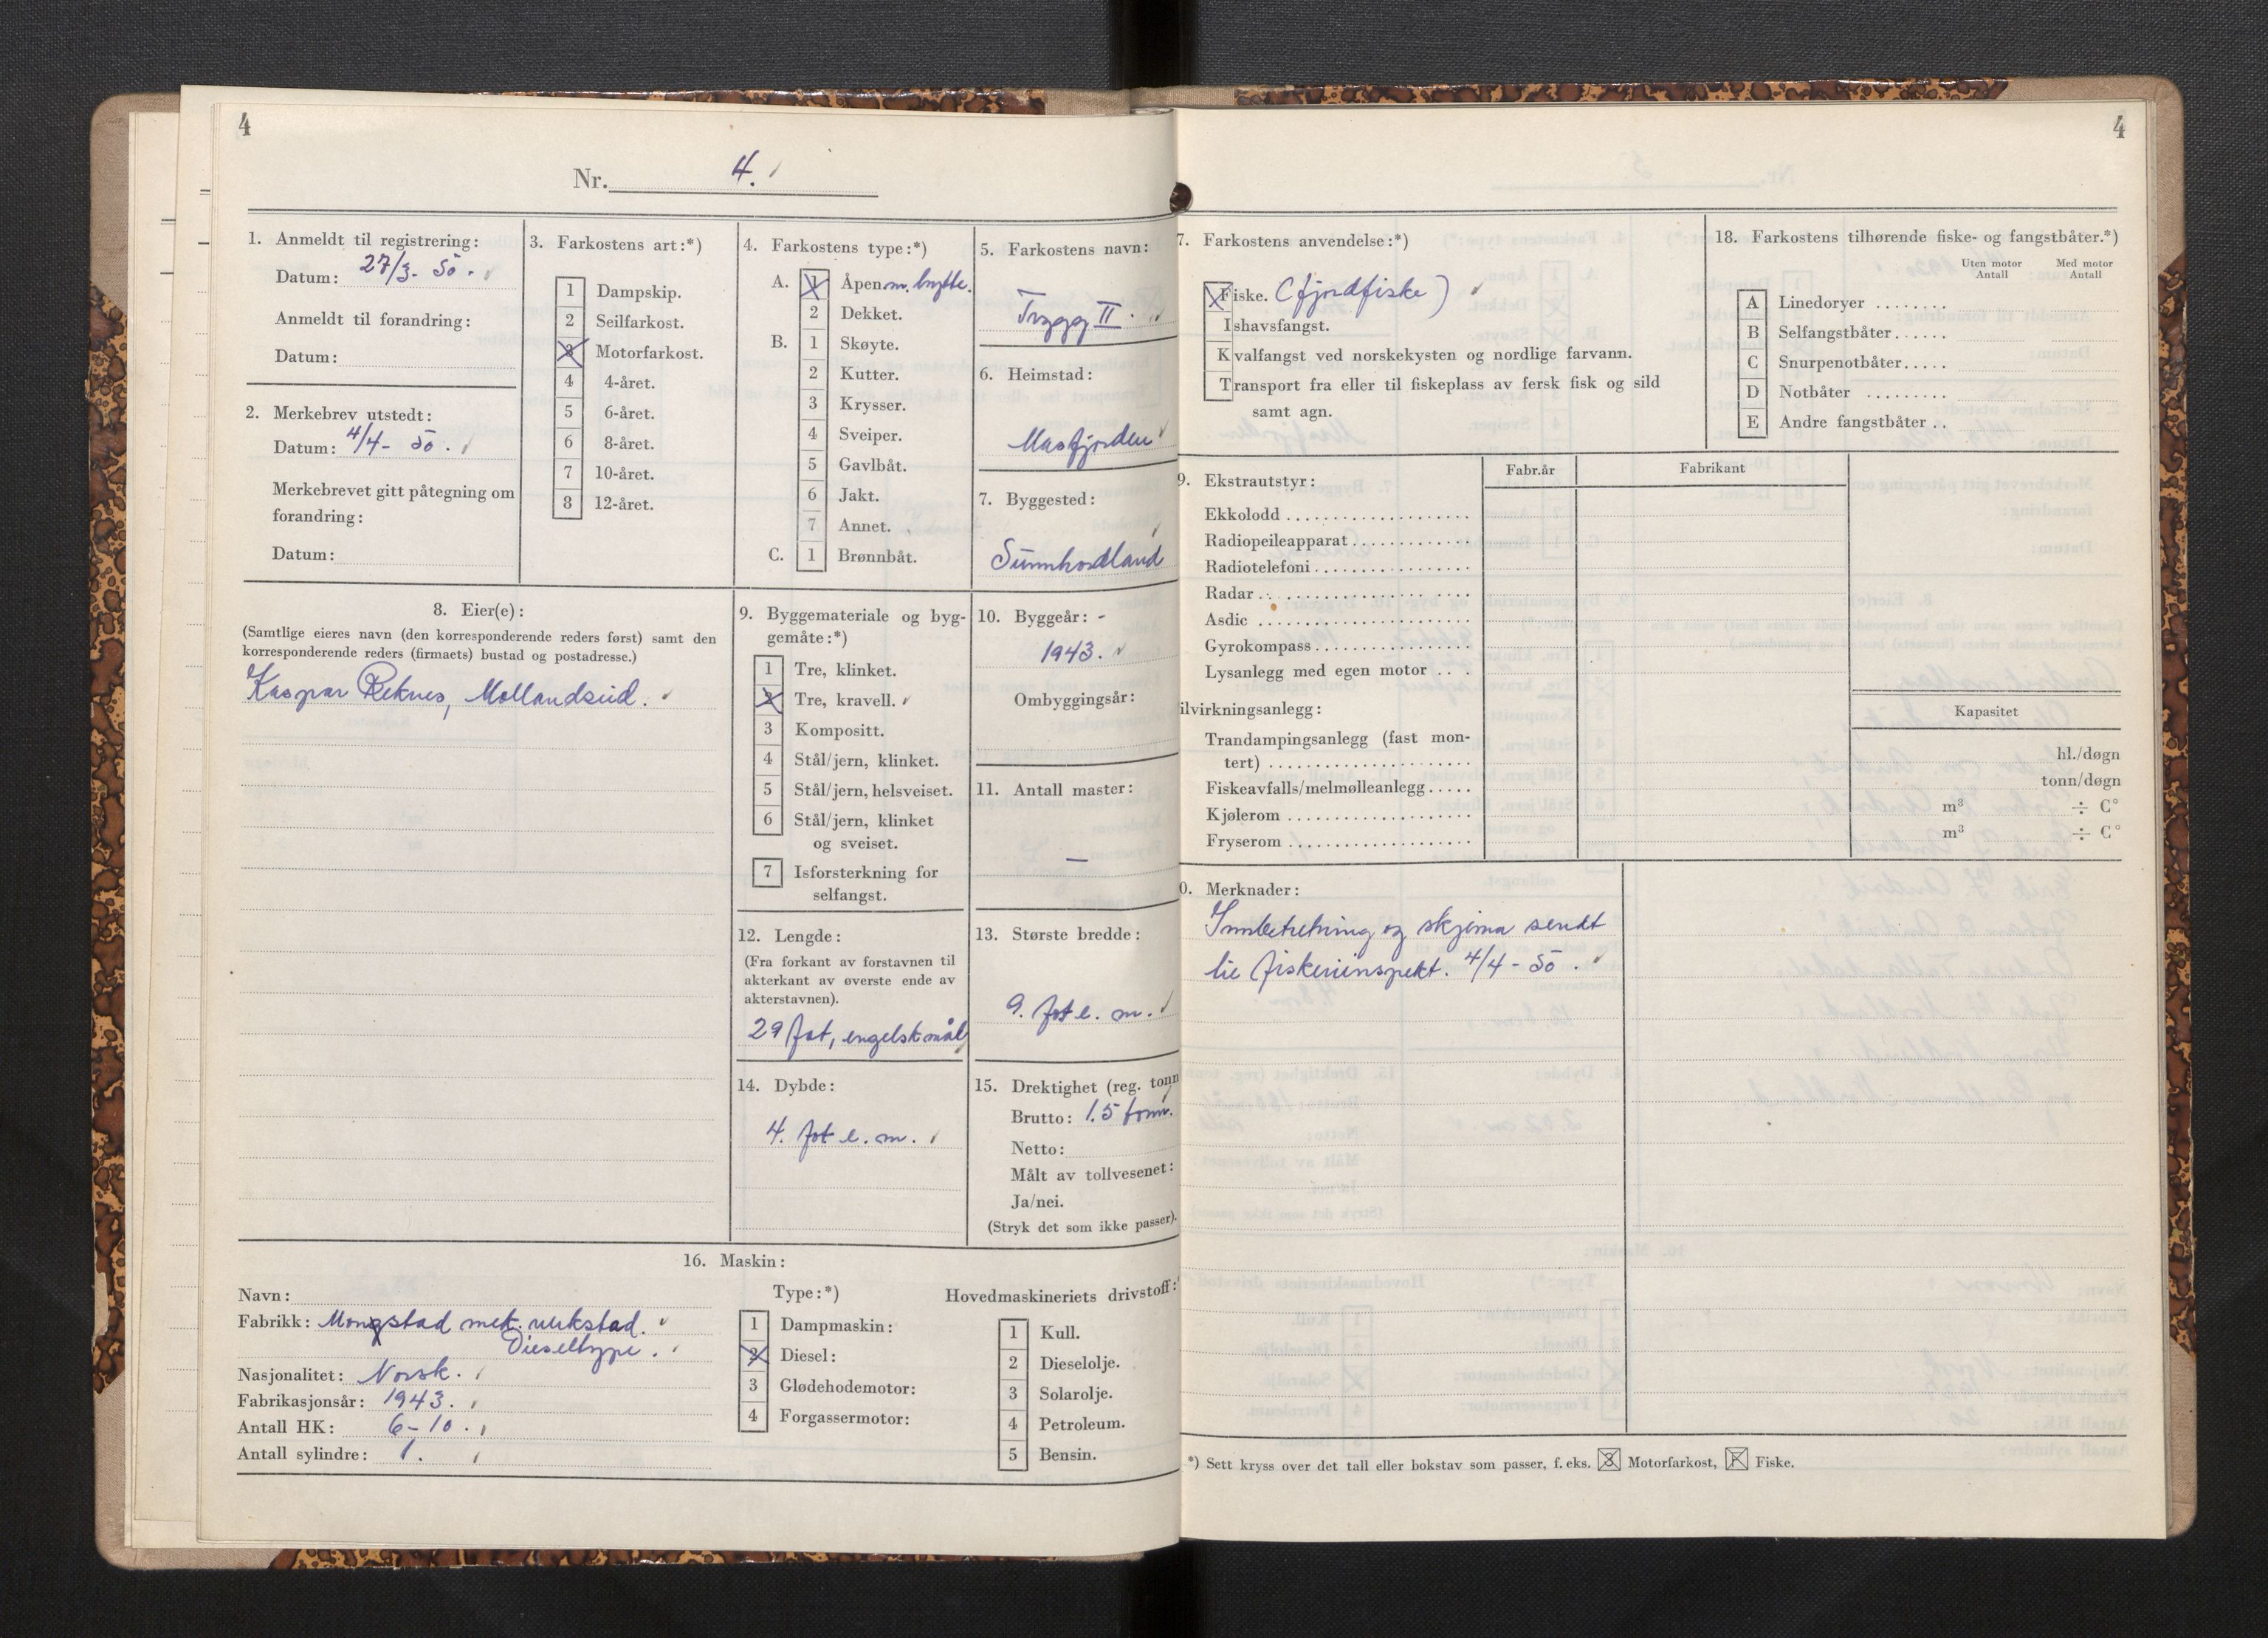 4
Nr. 4.
1. Anmeldt til registrering:
Datum: 27/3- 50.
Anmeldt til forandring:
Datum:
2. Merkebrev utstedt:
Datum: 4/4- 50.
Merkebrevet gitt påtegning om
forandring:
Datum:
3. Farkostens art:*)
1 Dampskip.
2 Seilfarkost.
3 Motorfarkost.
4 4-året.
5 6-året.
6 8-året.
7 10-året.
8 12-året.
4. Farkostens type:*)
A. 1 Åpen m. lugtte.
2 Dekket.
B. 1 Skøyte.
2 Kutter.
3 Krysser.
4 Sveiper.
5 Gavlbåt.
6 Jakt.
7 Annet.
C. 1 Brønnbåt.
5. Farkostens navn:
Trygg II.
6. Heimstad:
Masfjorden
7. Byggested:
Sunnhordland
8. Eier(e):
(Samtlige eieres navn (den korresponderende reders først) samt den
korresponderende reders (firmaets) bustad og postadresse.)
Kaspar Reknes, Mollandseid.
9. Byggemateriale og byg-
gemåte:*)
1 Tre, klinket.
2 Tre, kravell.
3 Kompositt.
4 Stål/jern, klinket.
5 Stål/jern, helsveiset.
6 Stål/jern, klinket
og sveiset.
7 Isforsterkning for
selfangst.
10. Byggeår: -
1943.
Ombyggingsår:
11. Antall master:
—
12. Lengde:
(Fra forkant av forstavnen til
akterkant av øverste ende av
akterstavnen).
29 fot, engelsk mål
13. Største bredde:
9. fot e. m.
14. Dybde:
4. fot e. m.
15. Drektighet (reg. tonn
Brutto: 1.5 tonn.
Netto:
Målt av tollvesenet:
Ja/nei.
(Stryk det som ikke passer).
16. Maskin:
Navn:
Fabrikk: Mongstad mek. verkstad.
Dieseltype.
Nasjonalitet: Norsk.
Fabrikasjonsår: 1943.
Antall HK: 6-10.
Antall sylindre: 1.
Type:*)
1 Dampmaskin:
2 Diesel:
3 Glødehodemotor:
4 Forgassermotor:
Hovedmaskineriets drivstoff:
1 Kull.
2 Dieselolje.
3 Solarolje.
4 Petroleum.
5 Bensin.
4
7. Farkostens anvendelse:*)
Fiske. (fjordfiske)
Ishavsfangst.
Kvalfangst ved norskekysten og nordlige farvann.
Transport fra eller til fiskeplass av fersk fisk og sild
samt agn.
18. Farkostens tilhørende fiske- og fangstbåter.*)
Uten motor Antall
Med motor Antall
A Linedoryer ........
B Selfangstbåter......
C Snurpenotbåter.....
D Notbåter .........
E Andre fangstbåter ..
9. Ekstrautstyr:
Fabr.år
Fabrikant
Ekkolodd
Radiopeileapparat
Radiotelefoni
Radar
Asdic
Gyrokompass
Lysanlegg med egen motor . . .
ilvirkningsanlegg:
Kapasitet
Trandampingsanlegg (fast mon-
tert) hl./døgn
Fiskeavfalls/melmølleanlegg..... tonn/døgn
Kjølerom m³ ÷ C°
Fryserom m³ ÷ C°
0. Merknader:
Innberetning og skjema sendt
til fiskeriinspekt. 4/4- 50.
*) Sett kryss over det tall eller bokstav som passer, f. eks. 3 Motorfarkost, F Fiske.